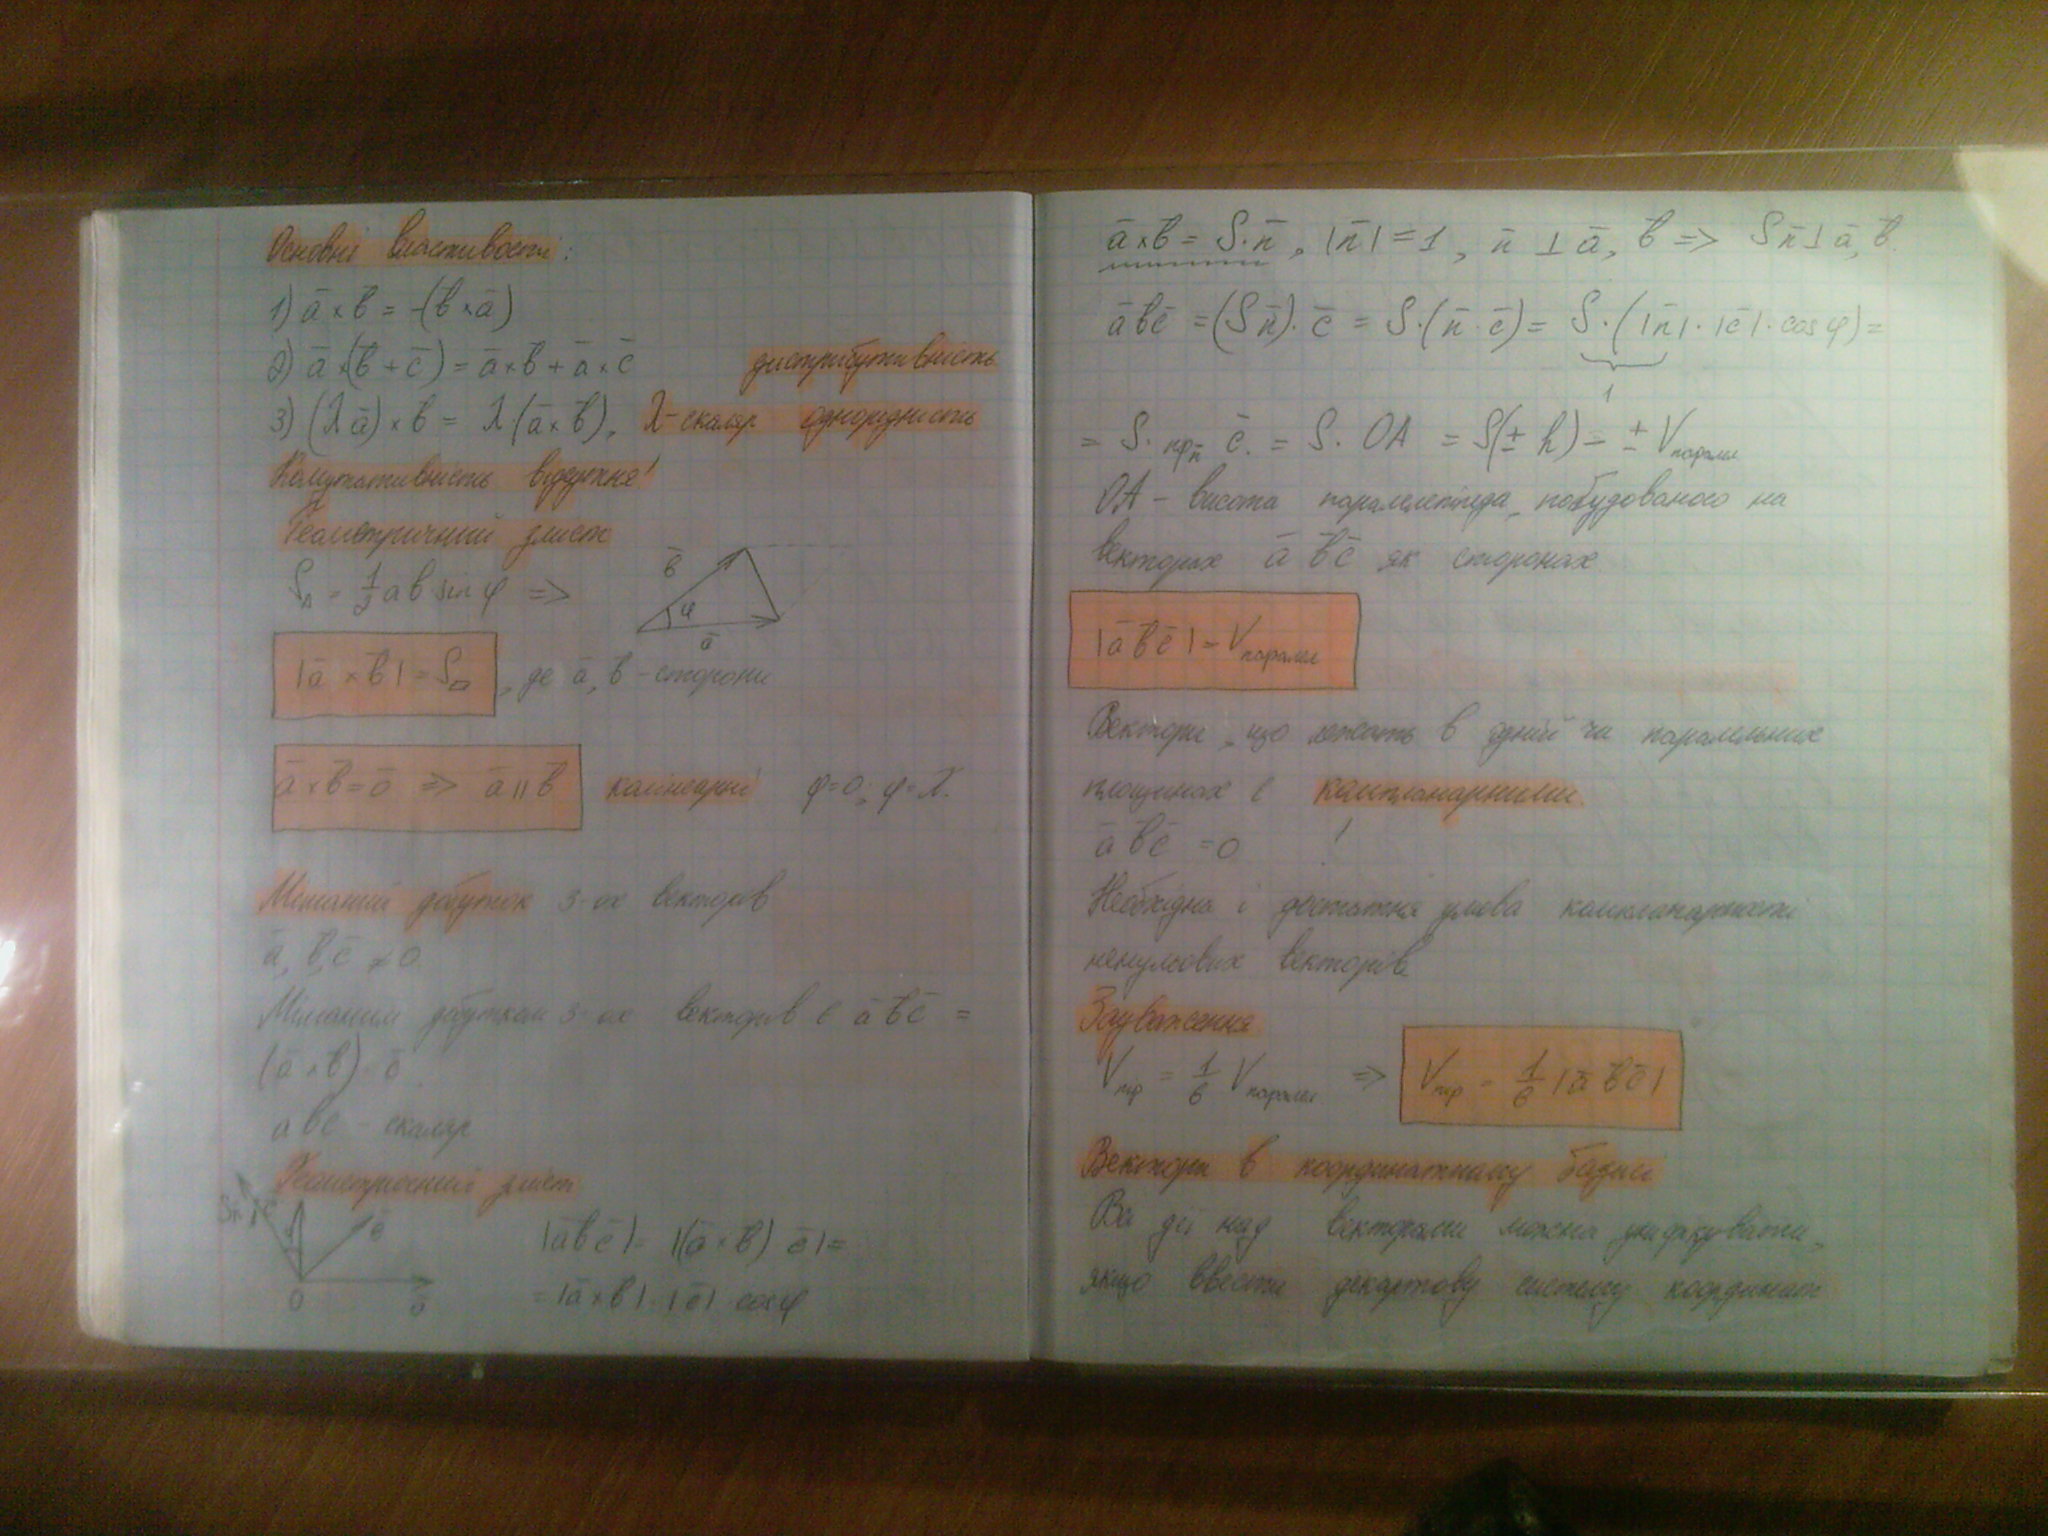 Основні властивості:
1) a̅ × b̅ = -(b̅ × a̅)
2) a̅ × (b̅ + c̅) = a̅ × b̅ + a̅ × c̅ дистрибутивність
3) (λa̅) × b̅ = λ(a̅ × b̅), λ-скаляр однорідність
Комутативність відсутня!
Геометричний зміст
S△ = 1/2 ab sin φ =>
b̅
φ
a̅
|a̅ × b̅| = S▱, де a̅, b̅ - сторони
a̅ × b̅ = 0̅ => a̅ || b̅ колінеарні φ=0; φ=π.
Мішаний добуток 3-ох векторів
a̅, b̅, c̅ ≠ 0
Мішаним добутком 3-ох векторів є a̅ b̅ c̅ =
(a̅ × b̅) · c̅
a̅ b̅ c̅ - скаляр
Геометричний зміст
|a̅ b̅ c̅| = |(a̅ × b̅) c̅| =
= |a̅ × b̅| · |c̅| cos φ
O
a̅ × b̅ = S·n̅, |n̅| = 1, n̅ ⊥ a̅, b̅ => Sn̅ ⊥ a̅, b̅.
a̅ b̅ c̅ = (S n̅) · c̅ = S · (n̅ · c̅) = S · (|n̅| · |c̅| · cos φ) =
1
= S · пр n̅ c̅. = S · OA = S(± h) = ± V паралел
OA - висота паралелепіпеда, побудованого на
векторах a̅ b̅ c̅ як сторонах.
|a̅ b̅ c̅| = V паралел
Вектори, що лежать в одній чи паралельних
площинах є компланарними.
a̅ b̅ c̅ = 0 !
Необхідна і достатня умова компланарності
ненульових векторів
Зауваження
V пір = 1/6 V паралел. => V пір = 1/6 |a̅ b̅ c̅|
Вектори в координатному базисі
Всі дії над векторами можна уніфікувати,
якщо ввести декартову систему координат